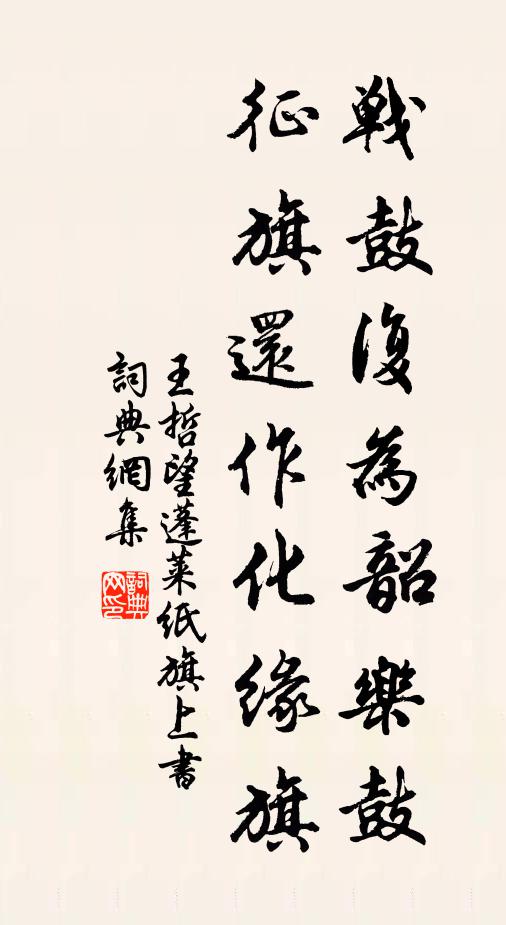 戰鼓復為韶樂鼓
征旗還作化緣旗
王哲望蓬萊紙旗上書
詞典網集
詞典網印